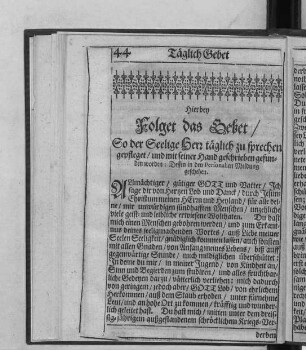 44 Täglich Gebet
Hierbey
Folget das Gebet /
So der Seelige Herr täglich zu sprechen
gepfleget / und mit seiner Hand geschrieben gefun-
den worden / Dessen in den Personalien Meldung
geschehen.
ALlmächtiger / gütiger GOTT und Vatter / Ich
sage dir von Hertzen Lob und Danck / durch Jesum
Christum meinen HErrn und Heyland / für alle dei-
ne / mir unwürdigen sündhafften Menschen / unzehliche
viele geist- und leibliche erwiesene Wolthaten. Du hast
mich einen Menschen gebohren werden / und zum Erkänt-
nus deines seeligmachenden Wortes / auß Liebe meiner
Seelen Seeligkeit / gnädiglich kommen lassen / auch bißhero
mit allen Gnaden / von Anfang meines Lebens / biß auff
gegenwärtige Stunde / mich mildiglichen überschüttet:
In deme du mir / in meiner Jugend / von Kindheit an /
Sinn und Begierden zum studiren / und alles fruchtbar-
liche Gedeyen darzu / vätterlich verliehen: mich dadurch
von geringem / jedoch aber GOTT Lob / von ehrlichem
Herkommen / auß dem Staub erhoben / unter fürnehme
Leut / und an hohe Ort zu kommen / kräfftig und wunder-
lich geleitet hast. Du hast mich / mitten unter dem dreis-
sig-jährigem außgestandenem schröcklichem Kriegs-Ver-
derben